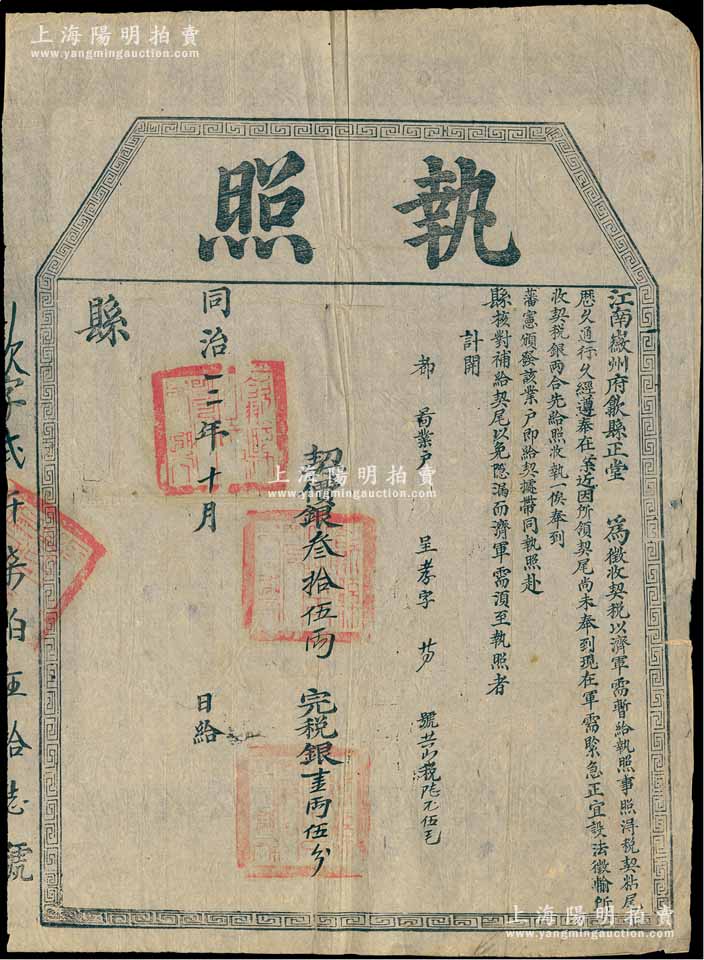 上海陽明拍賣
www.yangmingauction.com
執照
江南徽州府歙縣正堂 為徵收契稅以濟軍需暫給執照事照得稅契粘尾
歷久通行久經遵奉在案近因所領契尾尚未奉到現在軍需緊急正宜設法徵輸所
收契稅銀兩合先給照收執一俟奉到
藩憲頒發該業戶即給契據帶同執照赴
縣核對補給契尾以免隱漏而濟軍需須至執照者
計開
都 啚業戶 呈孝字 號共山稅
契價銀叁拾伍兩 完稅銀壹兩伍分
同治十二年十月 日給
縣
字貳仟柒伯五拾 號
上海陽明拍賣
www.yangmingauction.com
上海陽明拍賣
www.yangmingauction.com